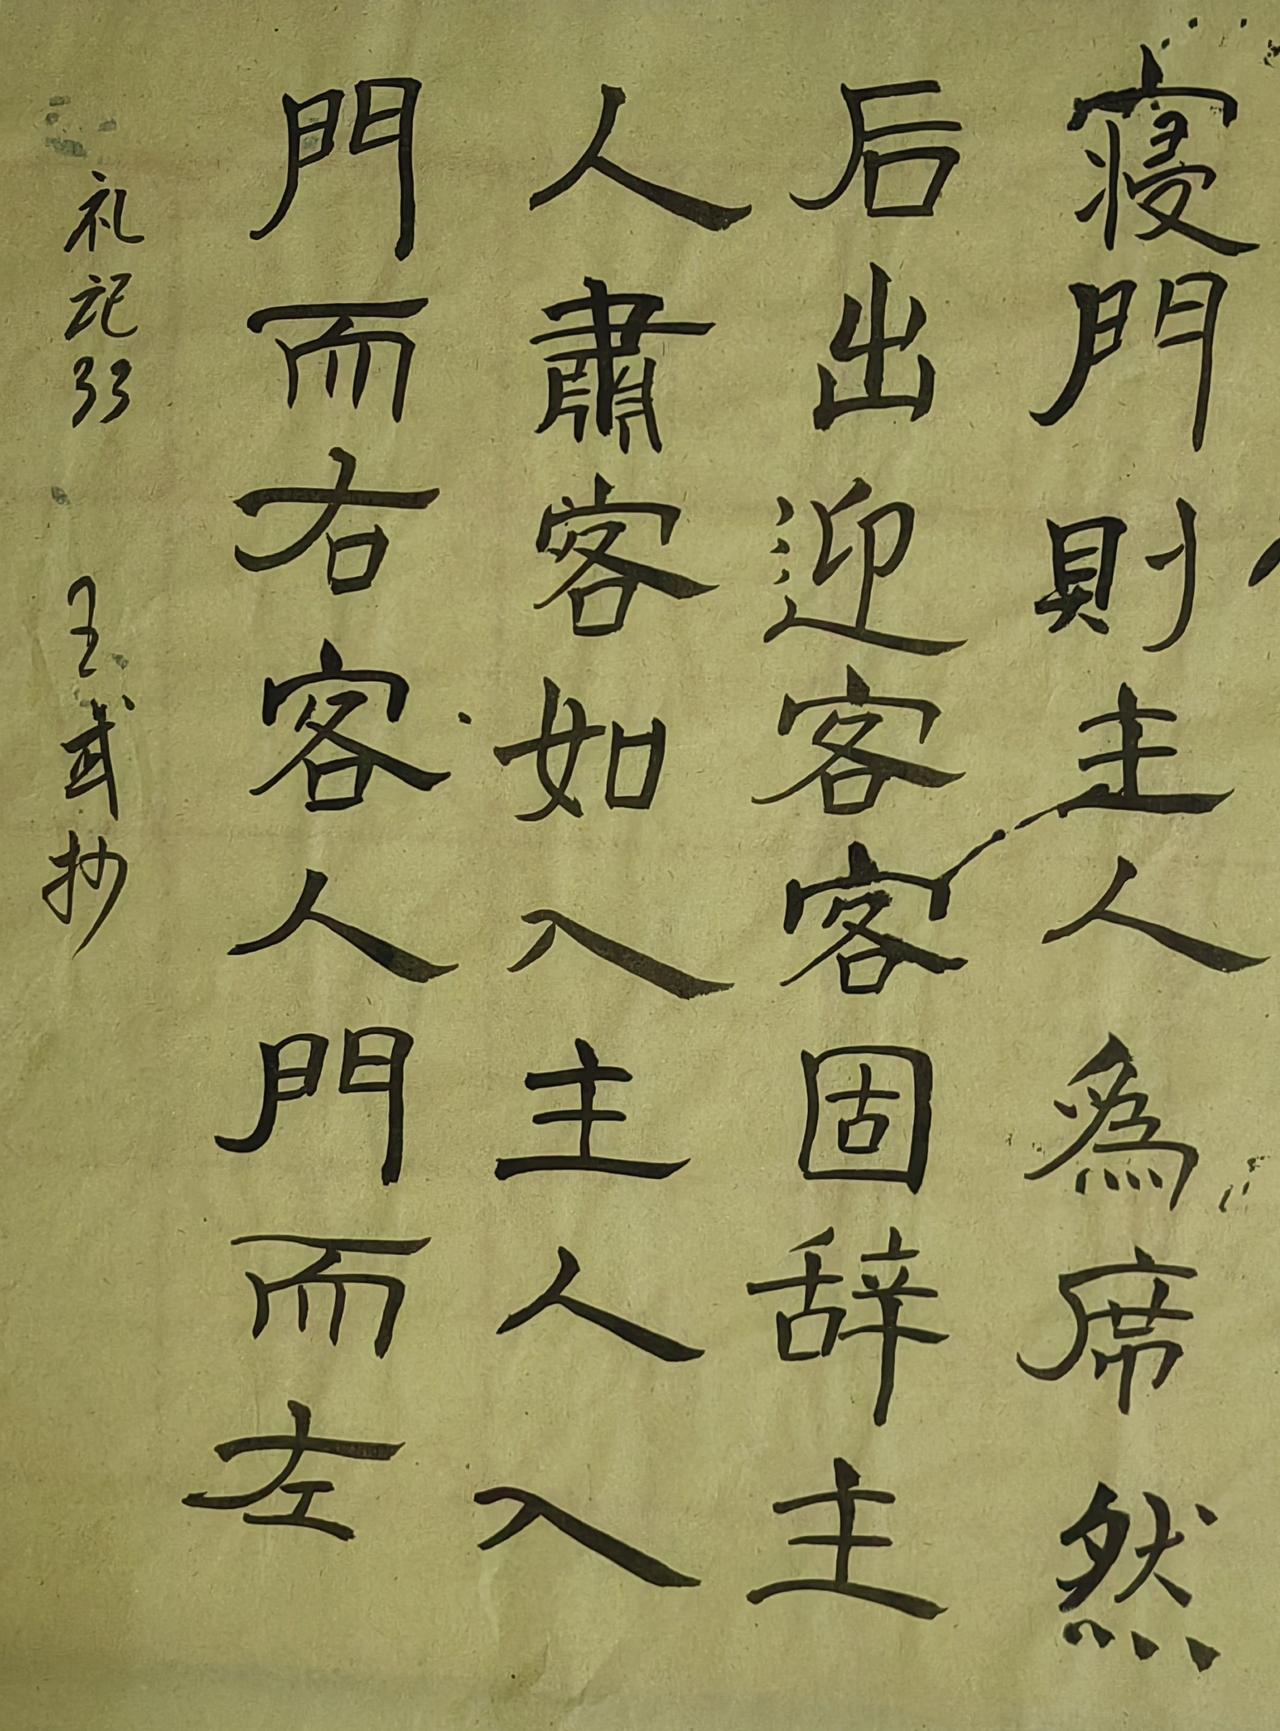 寝門則主人為席然
后出迎客客固辞主
人肅客如入主人入
門而右客人門而左
礼記33 王武抄